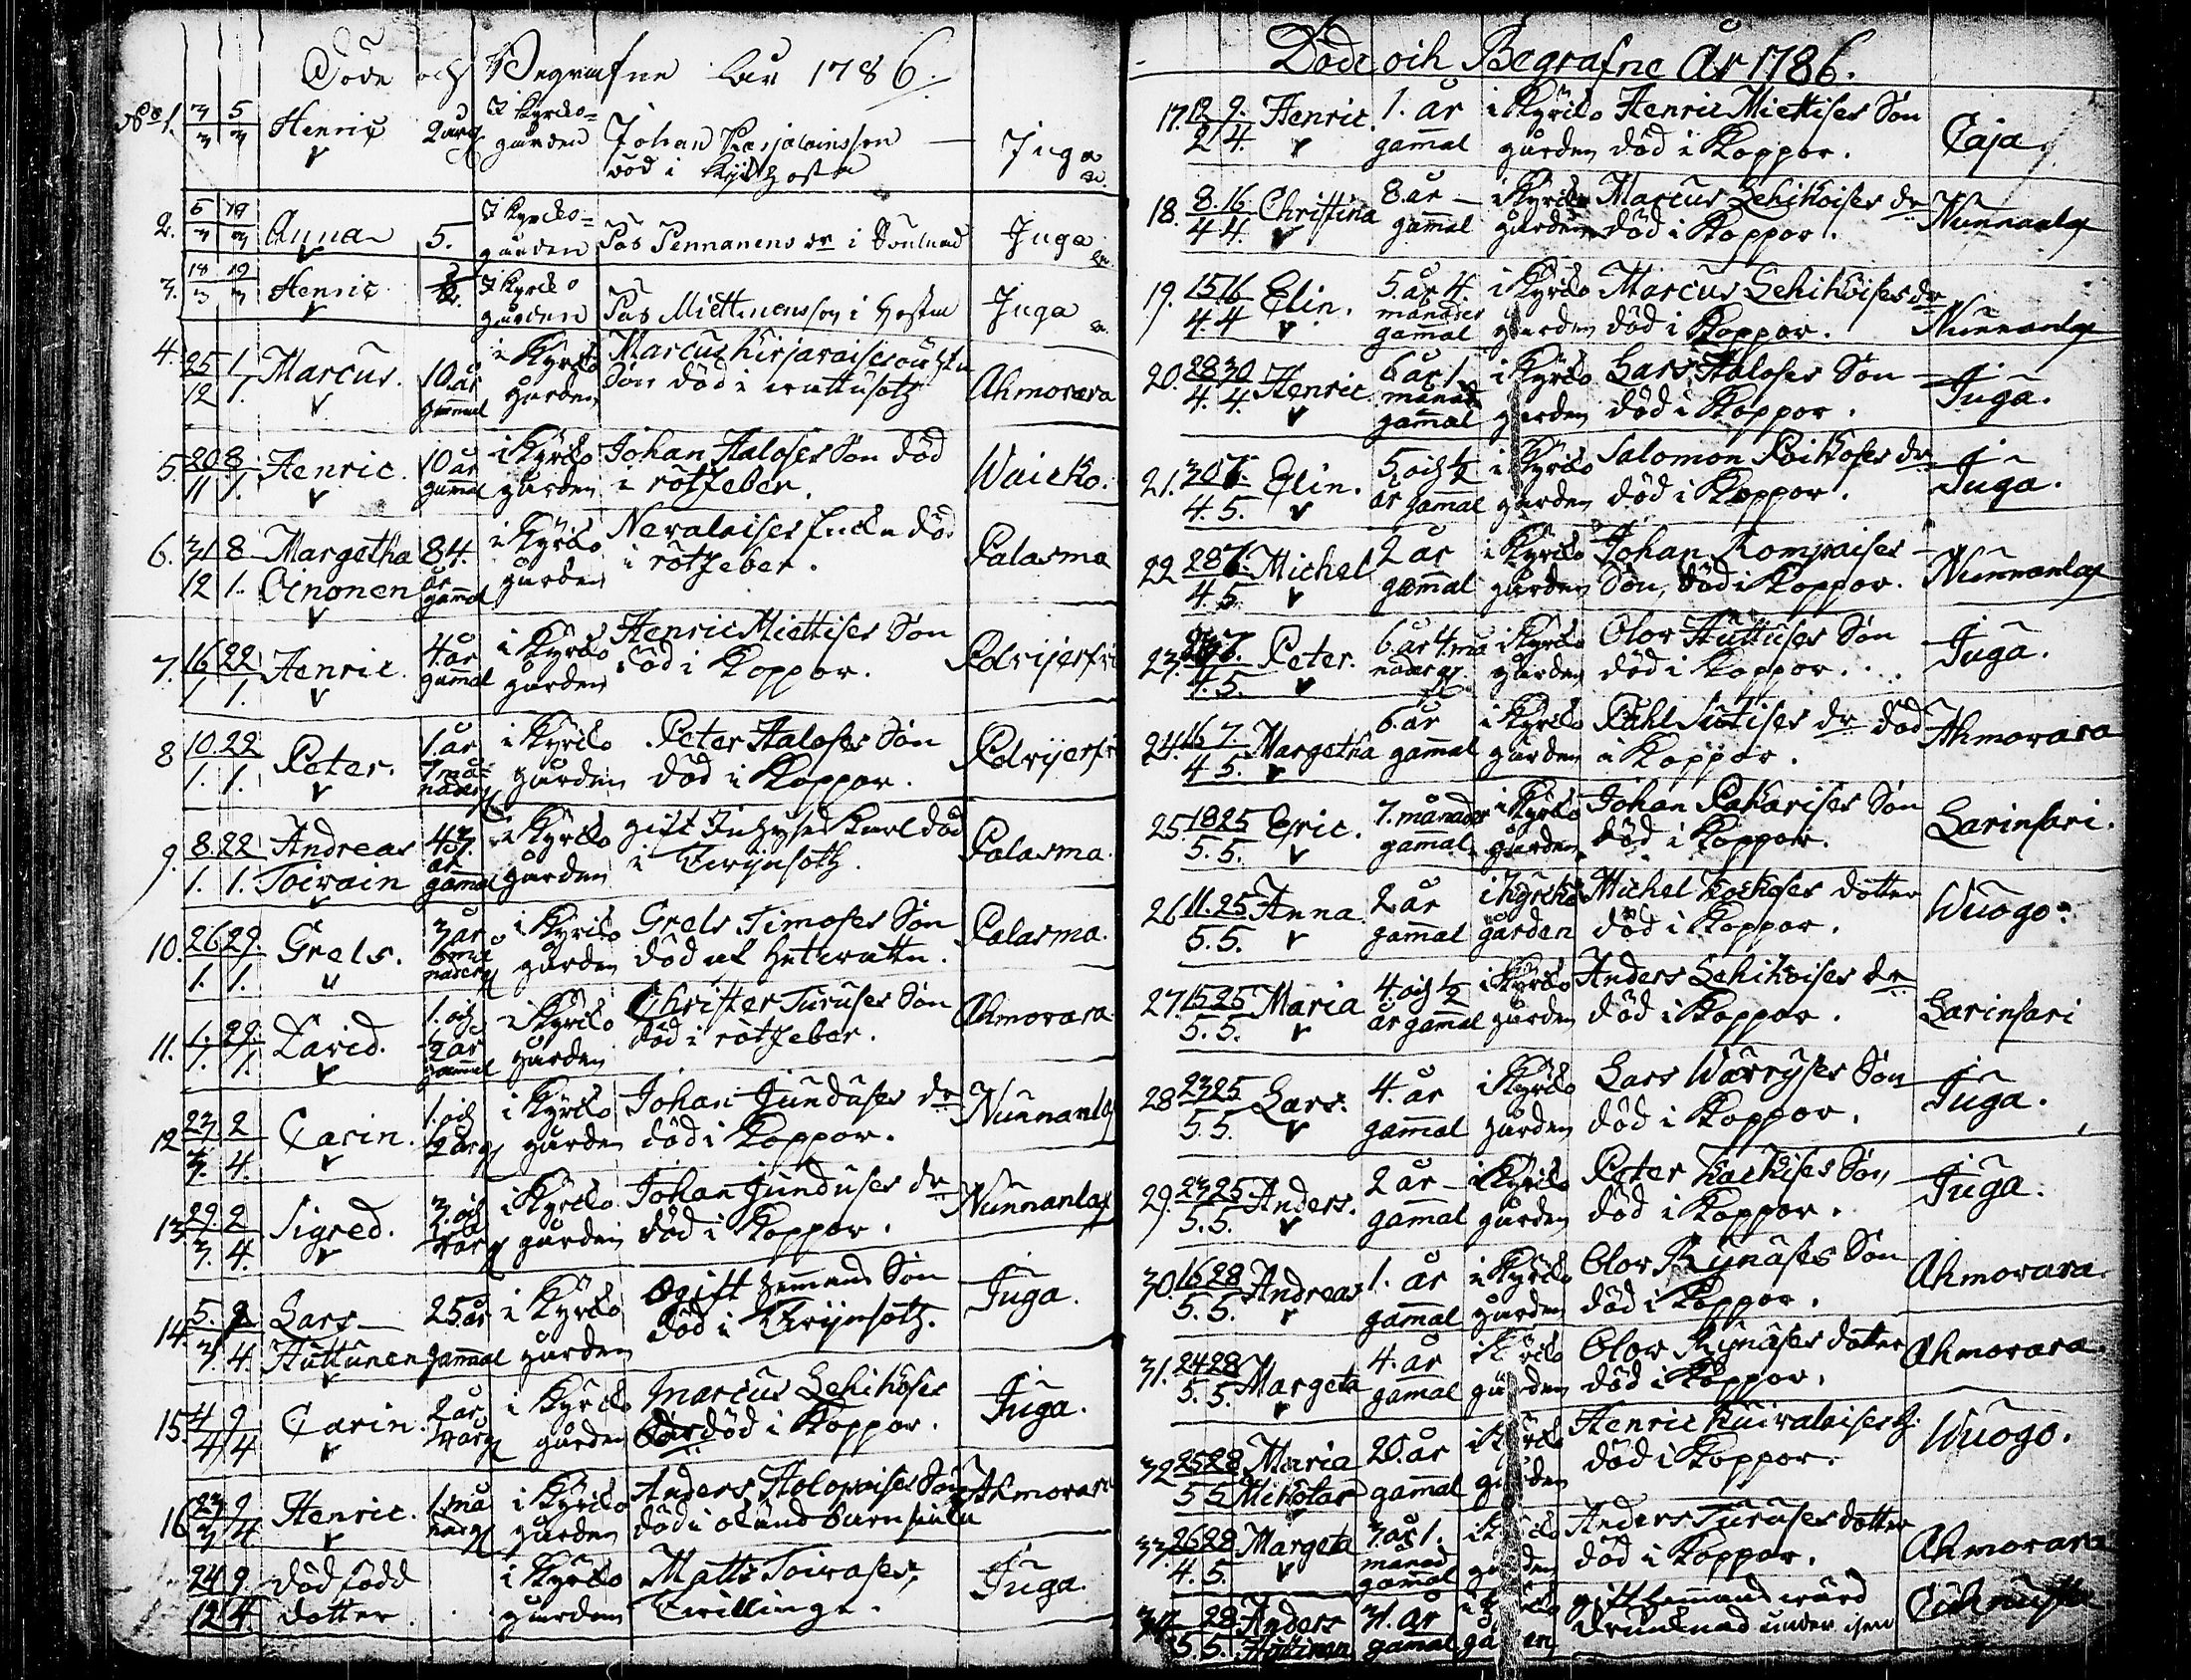 Döde och Begrafne År 1786.
No 1. 3/3 5/3 Henric 2 årg I Kyrko= gården Johan Karjalainssson död i Hosta Juga
2. 5/3 19/3 Anna 5. I Kyrko= gården Pås Pennanens dr i Juga
3. 18/3 19/3 Henric I Kyrko gården Pås Miettinens son i Hosta Juga
4. 25/12 1/1. Marcus. 10 år gammal i Kyrko gården Marcus son död i Ahmovara
5. 20/11 8/1. Henric. 10 år gammal i Kyrko gården Johan Haloses Son död i rötfeber. Waicko.
6. 31/12 8/1. Margetha Oinonen 84. år gamal i Kyrko gården Nevalaises Encka död i rötfeber. Palasma
7. 16/1 22/1. Henric. 4. år gamal i Kyrko gården Henric Miettises Son död i Koppor. Polvijerfvi
8 10/1. 22/1. Peter. 1. år 7 må= nader g i Kyrko gården Peter Haloses Son död i Koppor. Polvijerfvi
9. 8./1. 22/1. Andreas Toivain 43. år gamal i Kyrko gården gift Inhyses Karl död i Tvijnsoth. Palasma.
10. 26/1. 29./1. Grels. 3 år 6 må nader g i Kyrko gården Grels Timoses Son död af Palasma.
11. 1./1. 29./1. David. 1. och ½ år gammal i Kyrko gården Christer Turuses Son död i rötfeber. Ahmovara
12 23/3. 2/4. Carin. 1. och ½ årg i Kyrko gården Johan Junduses dr död i Koppor. Nunnanlax
13. 29./3. 2/4. Sigred. 3. och årg i Kyrko gården Johan Junduses dr död i Koppor. Nunnanlax
14. 5./3. 2/4. Lars Huttunen 25 år gammal i Kyrko gården Ogift hemans Son död i Tvijnsoth. Juga.
15. 4/4 9/4 Carin. 2 år årg i Kyrko gården Marcus Lehikoses död i Koppor. Juga.
16. 23/3 9/4 Henric. 1. må nad g i Kyrko gården Anders Holopaises Son död i okänd barnsiuka Ahmovara
24/12 9./4. död född dotter i Kyrko gården Matts Toivases, Twillinge. Juga.
Döde och Begrafne År 1786.
17. 12/2 9./4. Henric. 1. år gammal i Kyrko gården Henric Miettises Son död i Koppor. Caja
18. 8./4 16/4. Christina 8. år gammal i Kyrko gården Marcus Lehikoises dr död i Koppor. Nunnanlax
19. 15/4. 16/4 Elin. 5. år 4. månader gammal i Kyrko gården Marcus Lehikoises dr död i Koppor. Nunnanlax
20. 28/4. 30/4. Henric. 6 år 1 månad gammal i Kyrko gården Lars Haloses Son död i Koppor. Juga.
21. 30/4. 7./5. Elin. 5. och ½ år gamal i Kyrko gården Salomon Poikoses dr död i Koppor. Juga.
22 28/4. 7./5. Michel 2 år gammal i Kyrko gården Johan Rompaises Son, död i Koppor. Nunnanlax
23. 7./5. Peter. 6. år 4. må nader g. i Kyrko gården Olov Huttuses Son död i Koppor. Juga.
24. 16/4 7./5. Margetha 6. år gammal i Kyrko gården Påhl Sutises dr död i Koppor. Ahmovara
25. 18/5. 25/5. Eric. 7. månader gammal i Kyrko gården Johan Pakarises Son död i Koppor. Larinsari.
26 11./5. 25/5. Anna 2 år gammal i Kyrcko gården Michel Koskoses dotter död i Koppor. Wuogo.
27. 15/5. 25/5. Maria 4. och ½ år gammal i Kyrko gården Anders Lehikoises dr död i Koppor. Larinsari
28 23/5. 25/5. Lars. 4. år gammal i Kyrko gården Lars Warryses Son död i Koppor. Juga.
29. 23/5. 25/5. Anders. 2 år gammal i Kyrko gården Peter Son, död i Koppor. Juga.
30. 16/5. 28/5. Andreas 1. år gammal i Kyrko gården Olov Rynäses Son död i Koppor. Ahmovara.
31. 24/5. 28/5. Margeta 4. år gammal i Kyrko gården Olov Rynäses dotter död i Koppor. Ahmovara.
32 25/5 28/5 Maria Mikotar 20. år gammal i Kyrko gården Henric Kuivalaises h. död i Koppor. Wuogo.
33. 26/4. 28/5. Margeta 3 år 1. månad gammal i Kyrko gården Anders Turuses dotter död i Koppor. Ahmovara
34. 5. 28/5. Anders 31. år gamal i Kyrko gården gift hemmans drunknad under isen